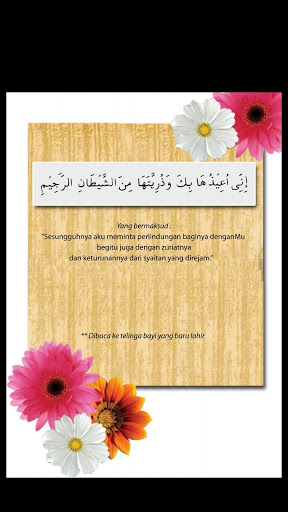 إِنِّى اُعِيْذُ هَا بِكَ وَذُرِيَّتَهَا مِنَ الشَّيْطَانِ الرَّجِيْمِ
Yang bermaksud :
"Sesungguhnya aku meminta perlindungan baginya denganMu
begitu juga dengan zuriatnya
dan keturunannya dari syaitan yang direjam."
** Dibaca ke telinga bayi yang baru lahir